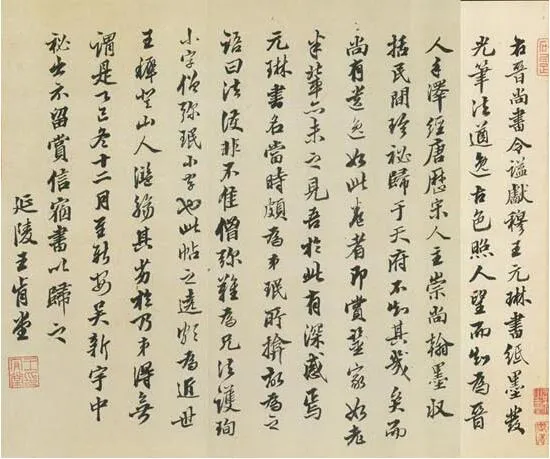 右晉尚書令謚獻穆王元琳書紙墨發
光筆法遒逸古色照人望而知為晉
人手澤經唐歷宋人主崇尚翰墨收
括民間珍秘歸于天府不知其幾矣而
尚有遺逸如此卷者即賞鑒家如老
米輩亦未之見吾於此有深感焉
元琳書名當時頗為弟珉所揜故為之
語曰法護非不佳僧彌難為兄法護珣
小字僧彌珉小字也此帖之為近世
王穉登山人濫觴其劣於乃弟得無
謂是乙巳冬十二月至新安吳新宇中
秘出示留賞信宿書以歸之
延陵王肯堂